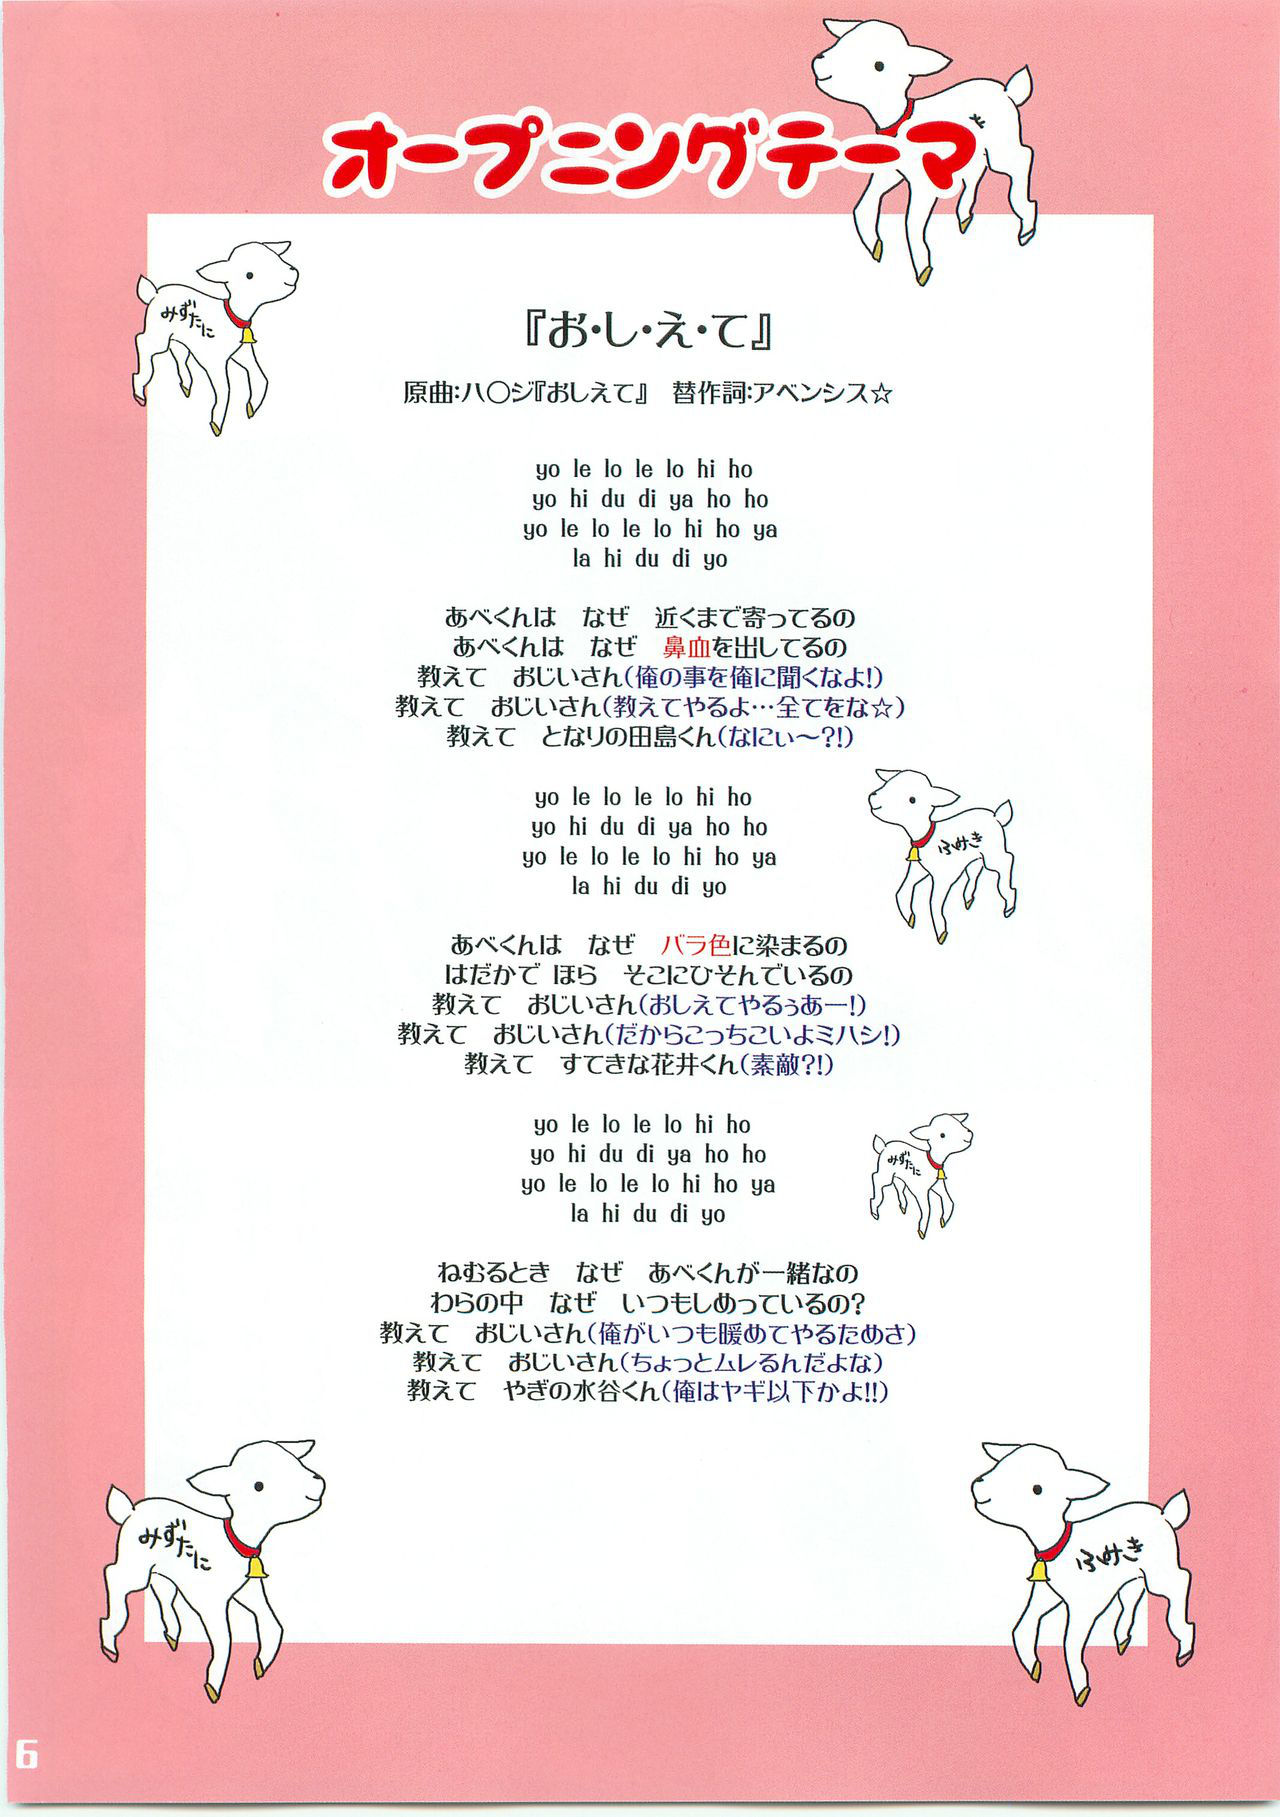 オープニングテーマ
みずたに
『お・し・え・て』
原曲:ハ〇ジ『おしえて』　替作詞:アベンシス☆
yo le lo le lo hi ho
yo hi du di ya ho ho
yo le lo le lo hi ho ya
la hi du di yo
あべくんは　なぜ　近くまで寄ってるの
あべくんは　なぜ　鼻血を出してるの
教えて　おじいさん(俺の事を俺に聞くなよ!)
教えて　おじいさん(教えてやるよ…全てをな☆)
教えて　となりの田島くん(なにぃ～?!)
yo le lo le lo hi ho
yo hi du di ya ho ho
yo le lo le lo hi ho ya
la hi du di yo
ふみき
あべくんは　なぜ　バラ色に染まるの
はだかで ほら　そこにひそんでいるの
教えて　おじいさん(おしえてやるぅあー!)
教えて　おじいさん(だからこっちこいよミハシ!)
教えて　すてきな花井くん(素敵?!)
yo le lo le lo hi ho
yo hi du di ya ho ho
yo le lo le lo hi ho ya
la hi du di yo
みずたに
ねむるとき　なぜ　あべくんが一緒なの
わらの中　なぜ　いつもしめっているの?
教えて　おじいさん(俺がいつも暖めてやるためさ)
教えて　おじいさん(ちょっとムレるんだよな)
教えて　やぎの水谷くん(俺はヤギ以下かよ!!)
みずたに
ふみき
6